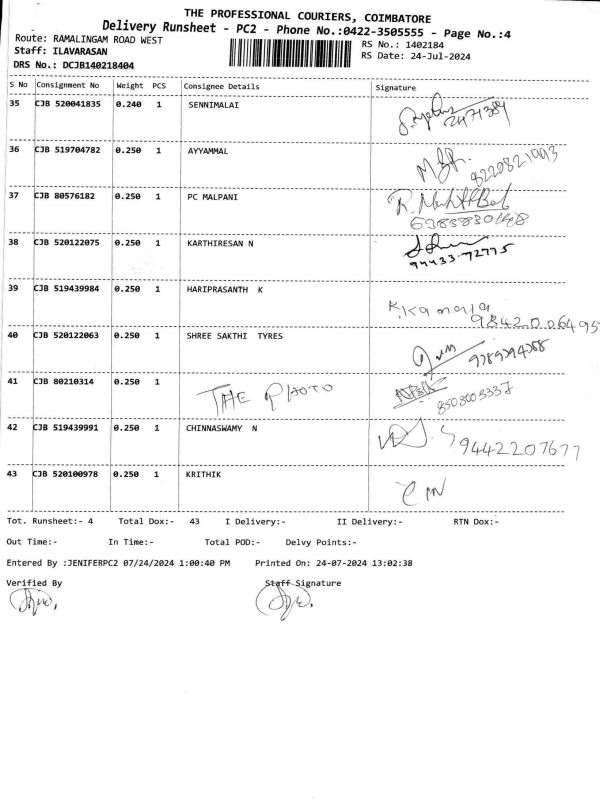 THE PROFESSIONAL COURIERS, COIMBATORE
Delivery Runsheet - PC2 - Phone No.:0422-3505555 - Page No.:4
Route: RAMALINGAM ROAD WEST
RS No.: 1402184
Staff: ILAVARASAN
RS Date: 24-Jul-2024
DRS No.: DCJB140218404
S No Consignment No Weight PCS Consignee Details Signature
35 CJB 520041835 0.240 1 SENNIMALAI
36 CJB 519704782 0.250 1 AYYAMMAL
37 CJB 80576182 0.250 1 PC MALPANI
38 CJB 520122075 0.250 1 KARTHIRESAN N
94433-72775
39 CJB 519439984 0.250 1 HARIPRASANTH K
9842006495
40 CJB 520122063 0.250 1 SHREE SAKTHI TYRES
41 CJB 80210314 0.250 1 THE PHOTO
8508003337
42 CJB 519439991 0.250 1 CHINNASWAMY N
9442207677
43 CJB 520100978 0.250 1 KRITHIK
Tot. Runsheet:- 4 Total Dox:- 43 I Delivery:- II Delivery:- RTN Dox:-
Out Time:- In Time:- Total POD:- Delvy Points:-
Entered By :JENIFERPC2 07/24/2024 1:00:40 PM Printed On: 24-07-2024 13:02:38
Verified By Staff Signature